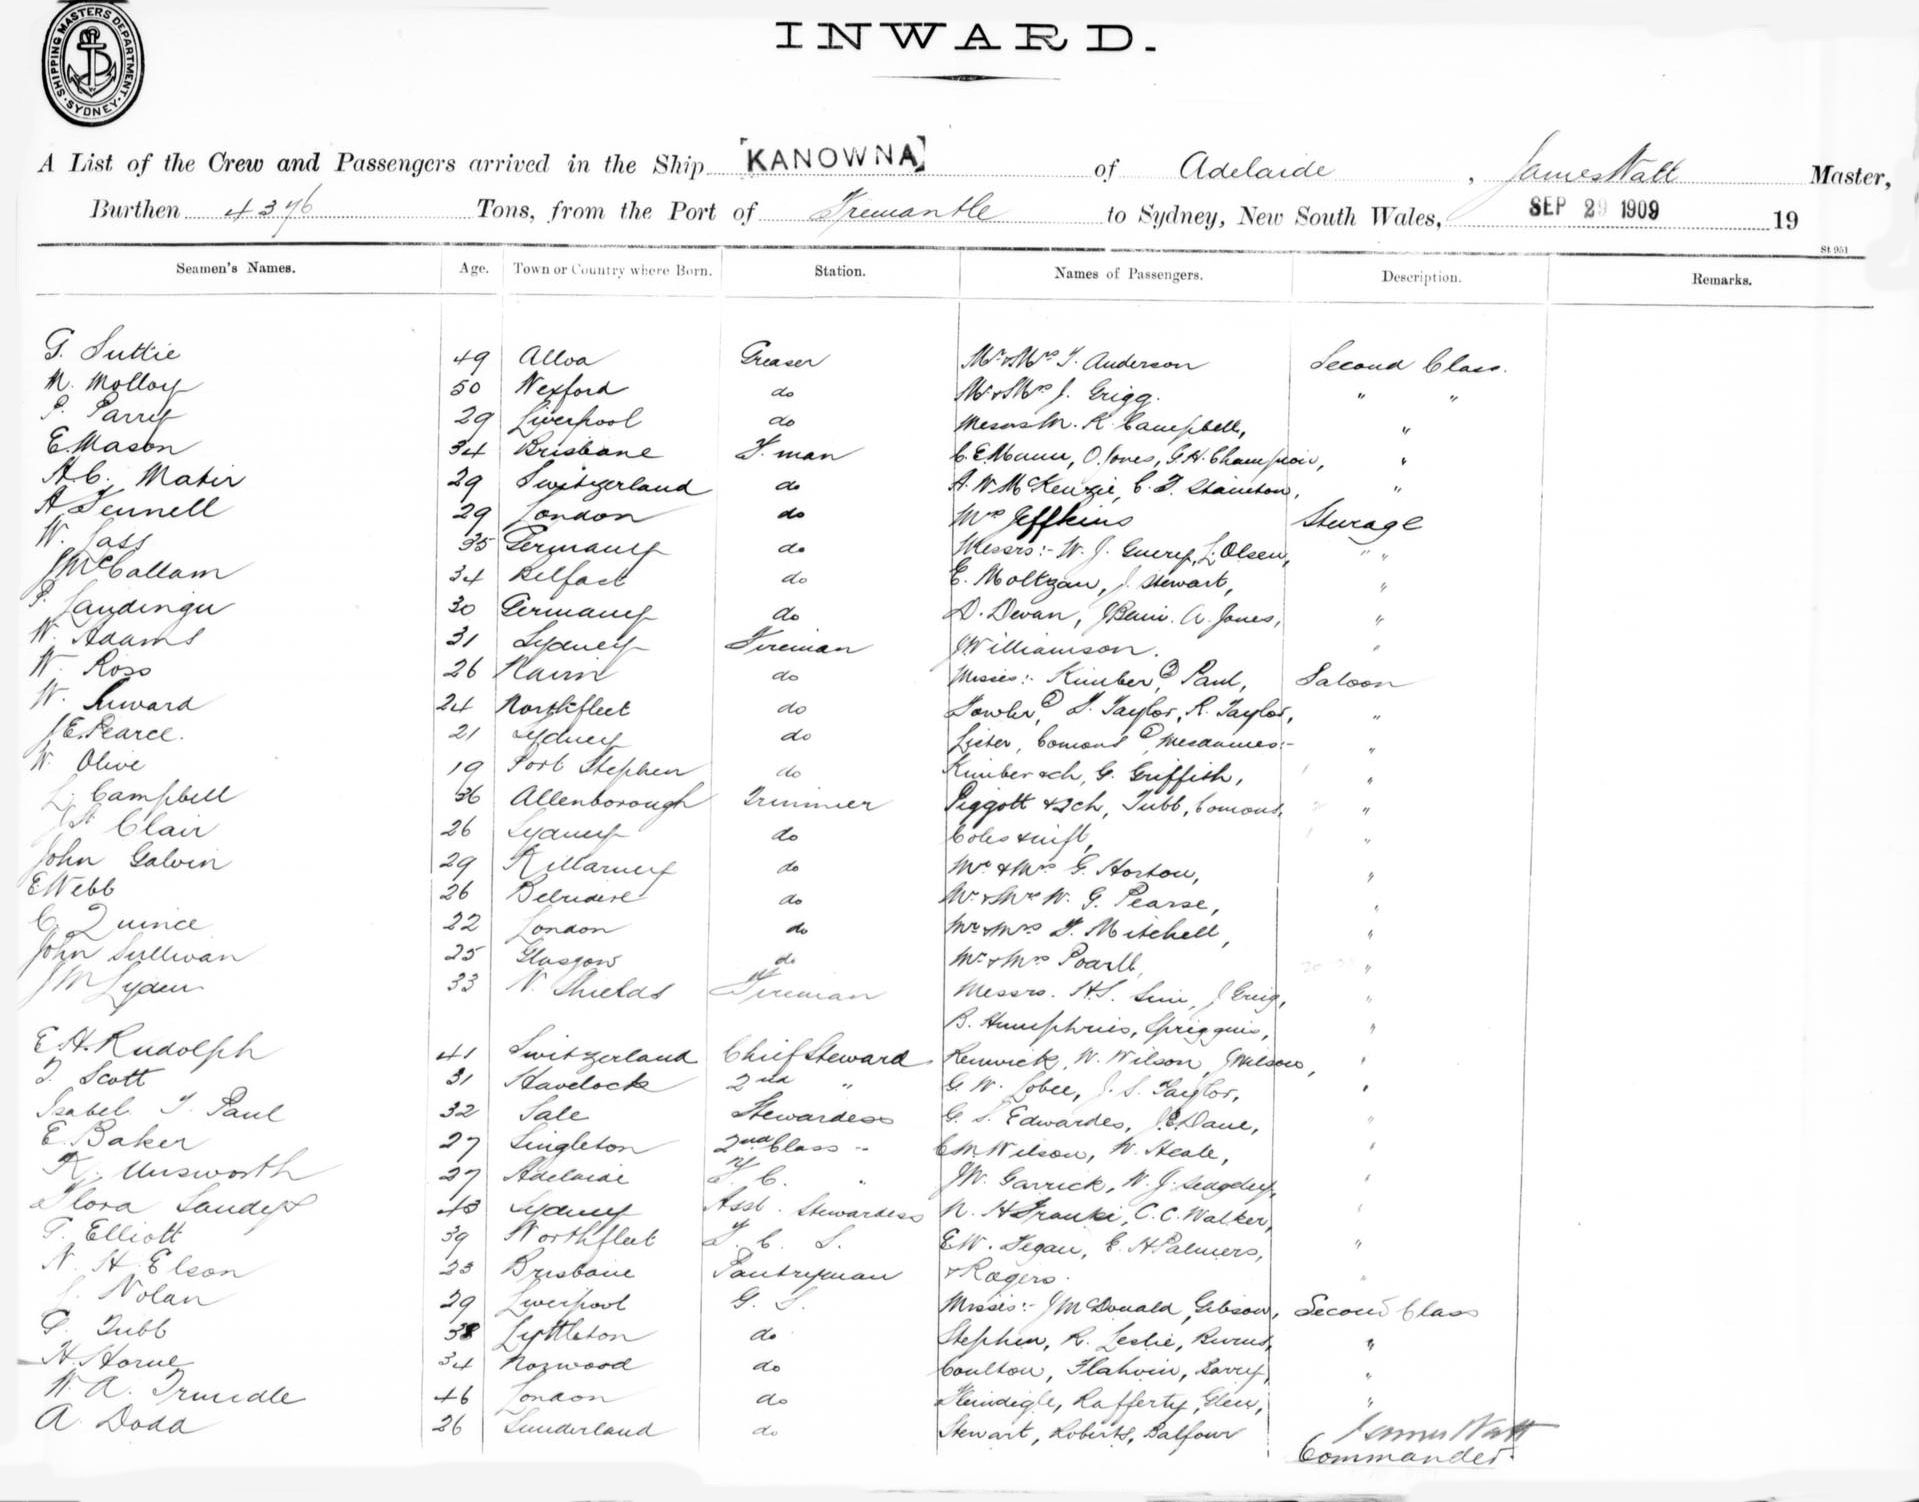 SHIPPING MASTERS DEPARTMENT
SYDNEY
INWARD.
A List of the Crew and Passengers arrived in the Ship [KANOWNA] of Adelaide, James Watt Master,
Burthen 4376 Tons, from the Port of Fremantle to Sydney, New South Wales, SEP 29 1909 19
St. 951
Seamen's Names. Age. Town or Country where Born. Station. Names of Passengers. Description. Remarks.
G. Suttie 49 Alloa Greaser Mr & Mrs T. Anderson Second Class.
M. Molloy 50 Wexford do Mr & Mrs J. Grigg. " "
P. Parry 29 Liverpool do Messrs M. R. Campbell, "
E. Mason 34 Brisbane F. man C. E. Mann, O. Jones, G. H. Champion, "
A. C. Matir 29 Switzerland do A. W McKenzie, C. F. Stainton, "
A Fennell 29 London do Mrs Jeffkins Sturage
W. Lass 35 Germany do Messrs:- W. J. Guery, L. Olsen, " "
J McCallam 34 Belfast do E. Moltzau, J. Stewart, "
P. 30 Germany do D. Devan, J Bain. A. Jones, "
W. Adams 31 Sydney Fireman J. Williamson. "
W. Ross 26 Nairn do Misses:- Kimber (3), Paul, Saloon
W. 24 Northfleet do Fowler, F. Taylor, R. Taylor, "
J E. Pearce. 21 Sydney do Lister, Comons, Mesdames:- "
W. Olive 19 Port Stephen do Kimber & ch, G. Griffith, "
L. Campbell 36 Allenborough Trimmer Piggott & 2ch, Tubb, Comons, "
J St Clair 26 Sydney do Coles & inft, "
John Galvin 29 Killarney do Mr & Mrs G. Horton, "
E Webb 26 Belvidere do Mr & Mrs W. G. Pearse, "
C. Quince 22 London do Mr & Mrs F. Mitchell, "
John Sullivan 25 Glasgow do Mr & Mrs "
J M Lyden 33 N. Shields Fireman Messrs. H. S. Sim, J Greig, "
B. Humphries, Spriggins, "
E. H. Rudolph 41 Switzerland Chief Steward Renwick, W. Wilson, J Wilson, "
T. Scott 31 Havelock 2nd " G. W. J. S. Taylor, "
Isabel T. Paul 32 Sale Stewardess G. S. Edwardes, J. E. Dane, "
E. Baker 27 Singleton 2nd Class " C M Wilson, W. Heale, "
K. Unsworth 27 Adelaide F. C. " J W. Garrick, W. J. Sedgeley, "
Flora Sandys 43 Sydney Asst. Stewardess N. H Franki, C. C. Walker, "
T. Elliott 39 Northfleet F. C. S. E W. Fegan, E. H Palmers, "
N. H. Elson 23 Brisbane Pantryman & Rogers. "
Nolan 29 Liverpool G. S. Misses:- J McDonald, Gibson, Second Class
P. Tubb 38 Lyttleton do Stephen, R. Leslie, Burns, "
H. Horne 34 Norwood do Coulton, Flahvin, "
W. A. Trundle 46 London do Rafferty, Glew, "
A. Dodd 26 Sunderland do Stewart, Roberts, Balfour
James Watt
Commander.